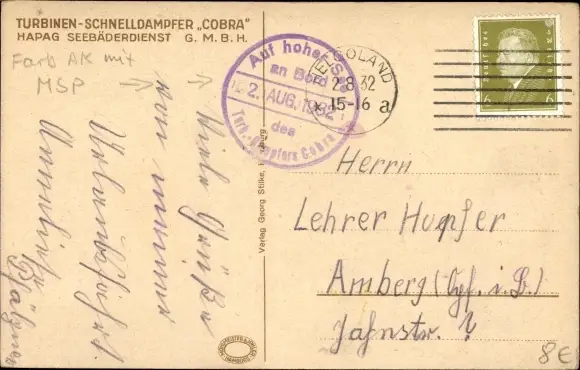 TURBINEN-SCHNELLDAMPFER „COBRA“
HAPAG SEEBÄDERDIENST G. M. B. H.
Farb AK mit
MSP
Auf hoher See
an Bord
2. AUG. 1932
des
Turb.-Dampfers Cobra
HELGOLAND
2.8.32
15-16 a
6 6
Viele Grüße
von meiner
Urlaubsfahrt
Verlag Georg Stilke, Hamburg
Herrn
Lehrer Hupfer
Amberg (Opf. i. B.)
Jahnstr. ?
HAMBURG
8€